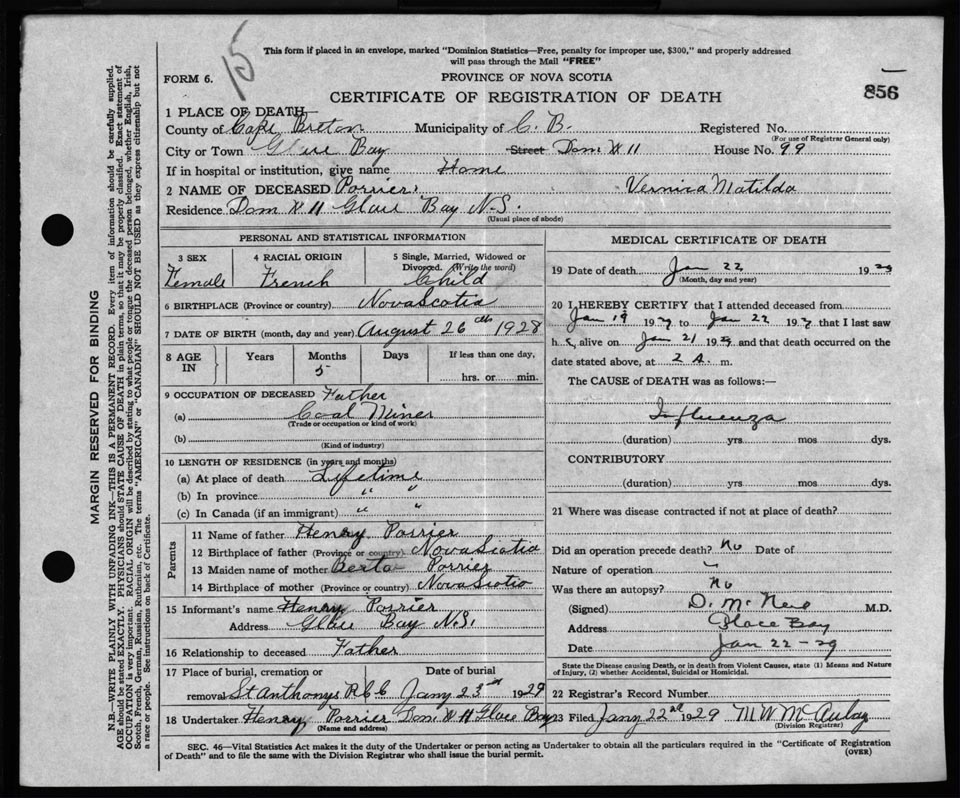 15
This form if placed in an envelope, marked "Dominion Statistics—Free, penalty for improper use, $300," and properly addressed
will pass through the Mail "FREE"
FORM 6. PROVINCE OF NOVA SCOTIA
CERTIFICATE OF REGISTRATION OF DEATH 856
1 PLACE OF DEATH—
County of Cape Breton Municipality of C. B. Registered No.
(For use of Registrar General only)
City or Town Glace Bay Street Dom # 11 House No. 99
If in hospital or institution, give name Home
2 NAME OF DECEASED Porrier Vernica Matilda
Residence Dom # 11 Glace Bay N.S.
(Usual place of abode)
PERSONAL AND STATISTICAL INFORMATION
3 SEX 4 RACIAL ORIGIN 5 Single, Married, Widowed or
Divorced. (Write the word)
Female French Child
6 BIRTHPLACE (Province or country) Nova Scotia
7 DATE OF BIRTH (month, day and year) August 26th 1928
8 AGE IN Years Months Days If less than one day,
5 hrs. or min.
9 OCCUPATION OF DECEASED Father
(a) Coal Miner
(Trade or occupation or kind of work)
(b)
(Kind of industry)
10 LENGTH OF RESIDENCE (in years and months)
(a) At place of death Lifetime
(b) In province " "
(c) In Canada (if an immigrant) " "
Parents
11 Name of father Henry Porrier
12 Birthplace of father (Province or country) Nova Scotia
13 Maiden name of mother Berta Porrier
14 Birthplace of mother (Province or country) Nova Scotia
15 Informant's name Henry Porrier
Address Glace Bay N.S.
16 Relationship to deceased Father
17 Place of burial, cremation or Date of burial
removal St Anthonys R C C Jany 23rd 1929
18 Undertaker Henry Porrier Dom # 11 Glace Bay
(Name and address)
MEDICAL CERTIFICATE OF DEATH
19 Date of death Jan 22 1929
(Month, day and year)
20 I HEREBY CERTIFY that I attended deceased from
Jan 19 192 to Jan 22 192 that I last saw
h alive on Jan 21 1929 and that death occurred on the
date stated above, at 2 A. m.
The CAUSE of DEATH was as follows:—
Influenza
(duration) yrs mos dys.
CONTRIBUTORY
(duration) yrs. mos. dys.
21 Where was disease contracted if not at place of death?
Did an operation precede death? No Date of
Nature of operation
Was there an autopsy? No
(Signed) D. Mc Neil M.D.
Address Glace Bay
Date Jan 22 - 29
State the Disease causing Death, or in death from Violent Causes, state (1) Means and Nature
of Injury, (2) whether Accidental, Suicidal or Homicidal.
22 Registrar's Record Number
23 Filed Jany 22nd 1929 M W McAulay
(Division Registrar)
SEC. 46—Vital Statistics Act makes it the duty of the Undertaker or person acting as Undertaker to obtain all the particulars required in the "Certificate of Registration
of Death" and to file the same with the Division Registrar who shall issue the burial permit. (OVER)
MARGIN RESERVED FOR BINDING
N.B.—WRITE PLAINLY WITH UNFADING INK—THIS IS A PERMANENT RECORD. Every item of information should be carefully supplied.
AGE should be stated EXACTLY. PHYSICIANS should STATE CAUSE OF DEATH in plain terms, so that it may be properly classified. Exact statement of
OCCUPATION is very important. RACIAL ORIGIN will be described by stating to what people or tongue the deceased person belonged, whether English, Irish,
Scotch, French, German, Russian, Ruthenian, etc. The terms "AMERICAN" or "CANADIAN" SHOULD NOT BE USED as they express citizenship but not
a race or people. See instructions on back of Certificate.